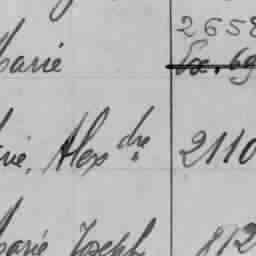 2658
Marie
vie, Alexdre 2110
Marie Joseph 812